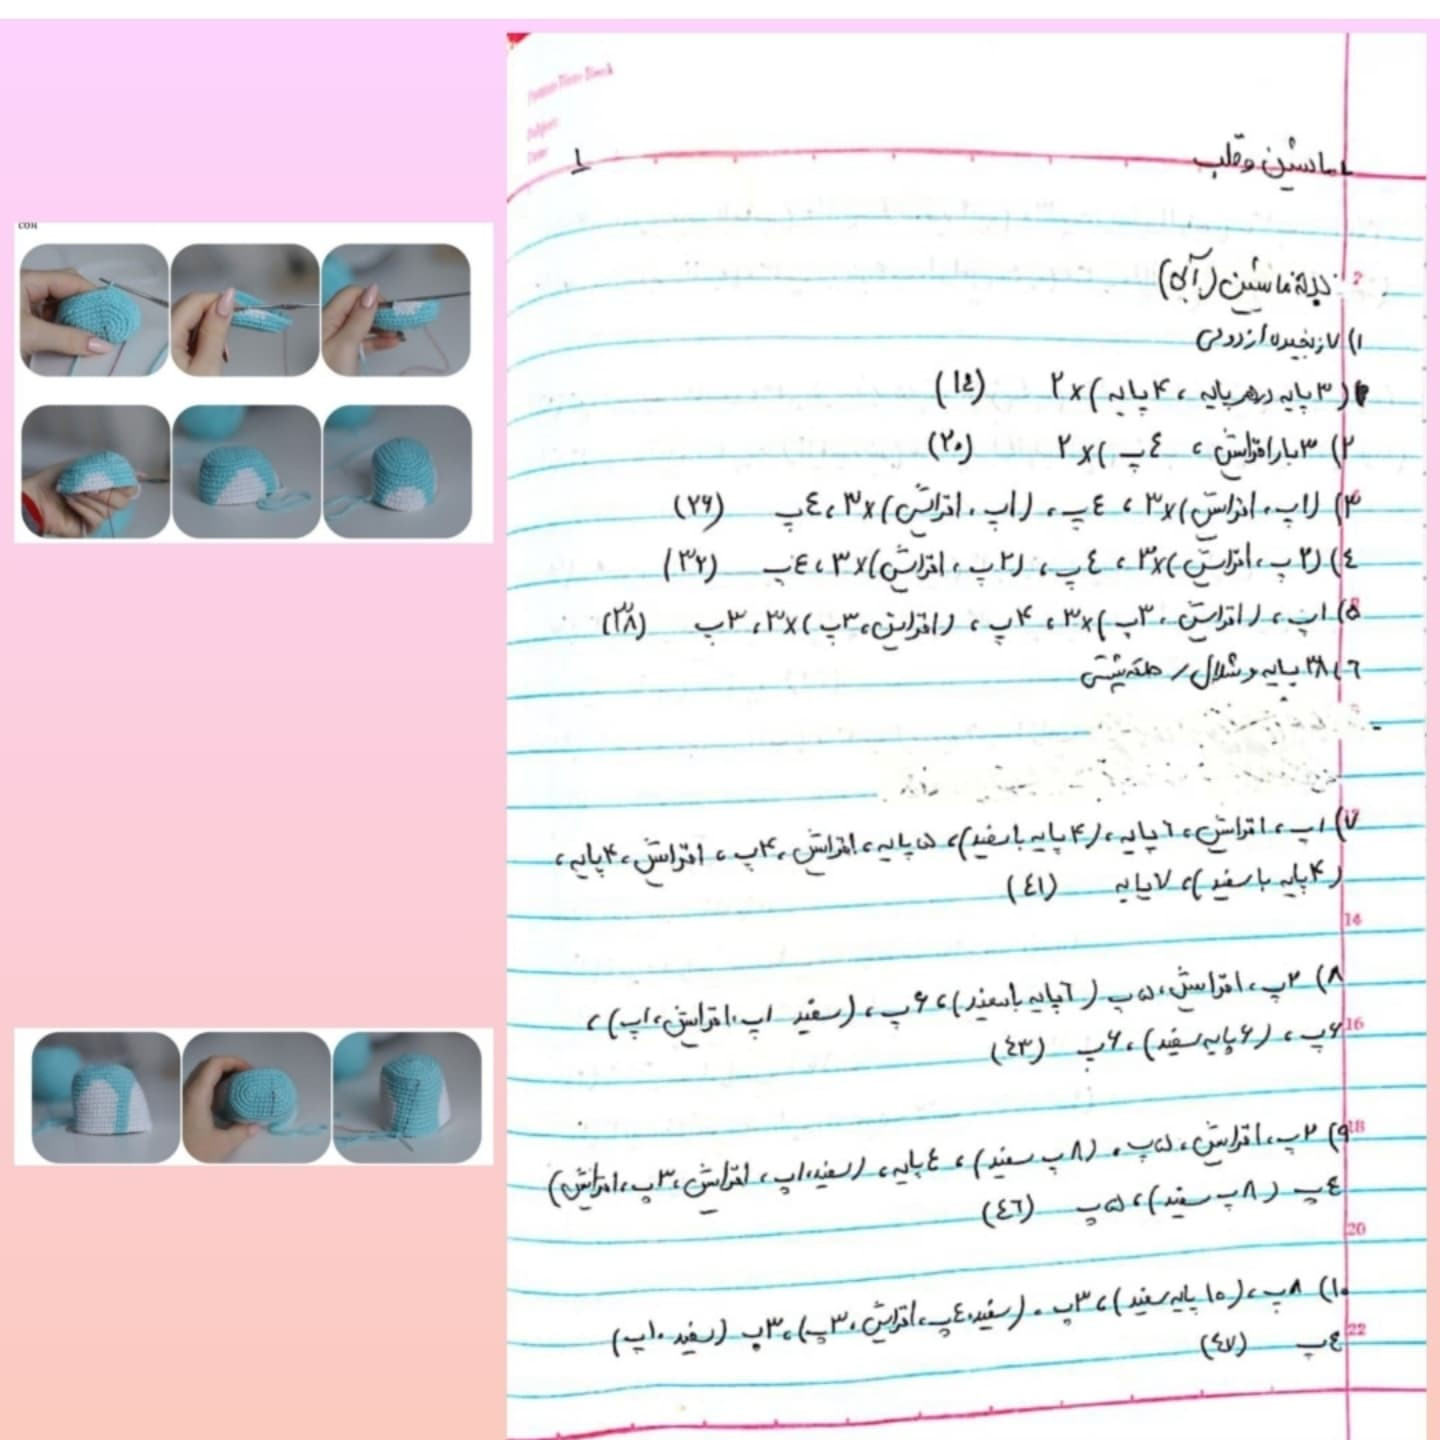 ماشین و قلب
1
بدنه ماشین (آبی)
۱) ۷ زنجیره از دومی
(۳ پایه در هر پایه ، ۴ پایه) ×۲ (۱٤)
۲) ۳ بار افزایش ، ٤ پ) ×۲ (۲۰)
۳) (۱پ، افزایش) ×۳ ، ٤ پ ، (۱پ، افزایش) ×۳ ، ٤پ (۲۶)
٤) (۲ پ، افزایش) ×۳ ، ٤ پ ، (۲ پ ، افزایش) ×۳ ، ٤پ (۳۲)
۵) ۱پ ، (افزایش ، ۳پ) ×۳ ، ۴ پ ، (افزایش ، ۳پ) ×۳ ، ۳پ (۳۸)
٦) ۳۸ پایه / حلقه پشتی
۷) ۱پ ، افزایش ، ٦ پایه ، (۴ پایه با سفید) ، ۵ پایه ، افزایش ، ۴پ ، افزایش ، ۴ پایه ،
(۴ پایه با سفید) ، ۷ پایه (٤۱)
۸) ۲پ ، افزایش ، ۵پ (٦ پایه با سفید) ، ۶ پ ، (سفید ۱پ ، افزایش ، ۱پ) ،
۶پ ، (۶ پایه سفید) ، ۶پ (٤۳)
۹) ۲پ ، افزایش ، ۵پ ، (۸ پ سفید) ، ٤ پایه ، (سفید، ۱پ ، افزایش ، ۳پ ، افزایش)
٤پ (۸ پ سفید) ، ۵پ (٤٦)
۱۰) ۸پ ، (۱۰ پایه سفید) ، ۳پ ، (سفید، ٤پ ، افزایش ، ۳پ) ، ۳پ (سفید ۱۰پ)
٤پ (٤۷)
COM
2
14
16
18
20
22